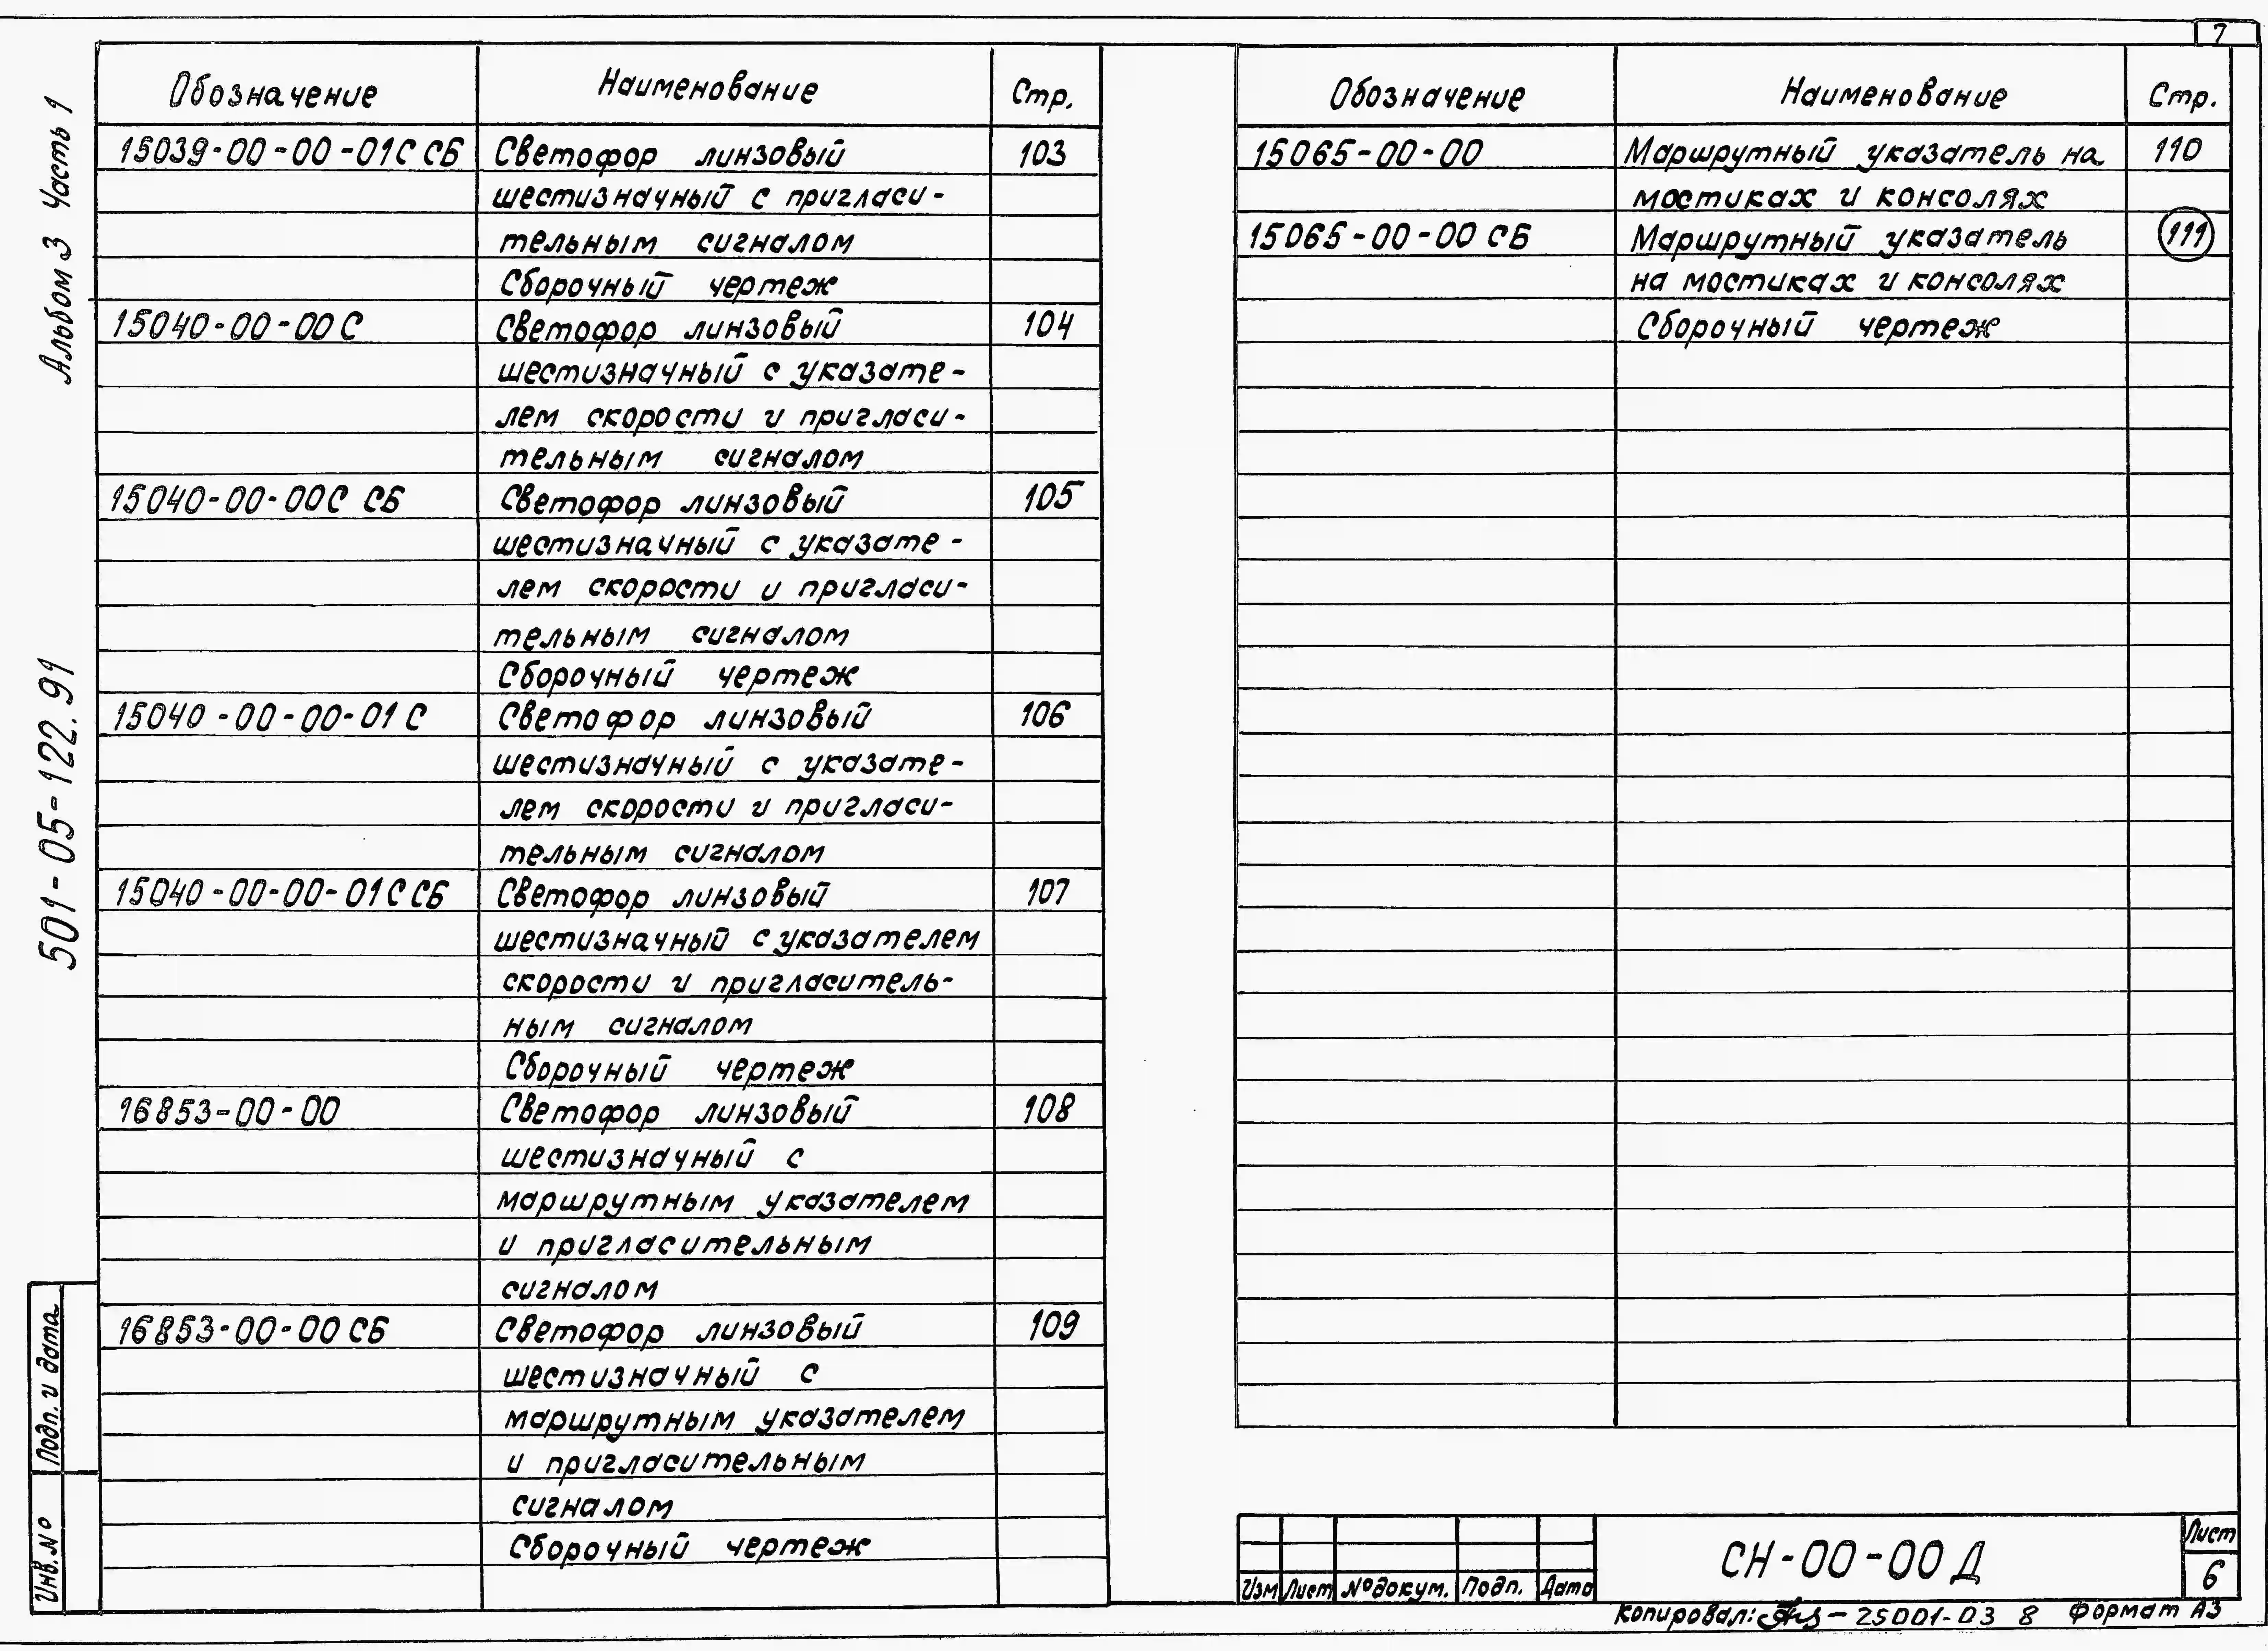 7
Альбом 3 Часть 1
501-05-122.91
Подп. и дата
Инв. №
Обозначение Наименование Стр.
15039-00-00-01С СБ Светофор линзовый 103
шестизначный с пригласи-
тельным сигналом
Сборочный чертеж
15040-00-00С Светофор линзовый 104
шестизначный с указате-
лем скорости и пригласи-
тельным сигналом
15040-00-00С СБ Светофор линзовый 105
шестизначный с указате-
лем скорости и пригласи-
тельным сигналом
Сборочный чертеж
15040-00-00-01С Светофор линзовый 106
шестизначный с указате-
лем скорости и пригласи-
тельным сигналом
15040-00-00-01С СБ Светофор линзовый 107
шестизначный с указателем
скорости и пригласитель-
ным сигналом
Сборочный чертеж
16853-00-00 Светофор линзовый 108
шестизначный с
маршрутным указателем
и пригласительным
сигналом
16853-00-00 СБ Светофор линзовый 109
шестизначный с
маршрутным указателем
и пригласительным
сигналом
Сборочный чертеж
Обозначение Наименование Стр.
15065-00-00 Маршрутный указатель на 110
мостиках и консолях
15065-00-00 СБ Маршрутный указатель 111
на мостиках и консолях
Сборочный чертеж
Изм Лист № докум. Подп. Дата
СН-00-00 Д
Лист
6
Копировал: 25001-03 8 Формат А3